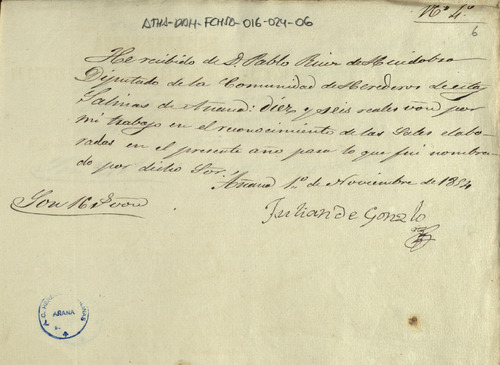 ATHA-DAH-FCHSD-016-024-06
Nº 4º
6
He recibido de D. Pablo Ruiz de Huidobro
Diputado de la Comunidad de Herederos de estas
Salinas de Añana: diez y seis reales von por
mi trabajo en el reconocimiento de las Sales elabo-
radas en el presente año para lo que fui nombra-
do por dicho Sor.
Añana 1º de Noviembre de 1854
Son 16 rs von
Julian de Gonzalo
AÑANA